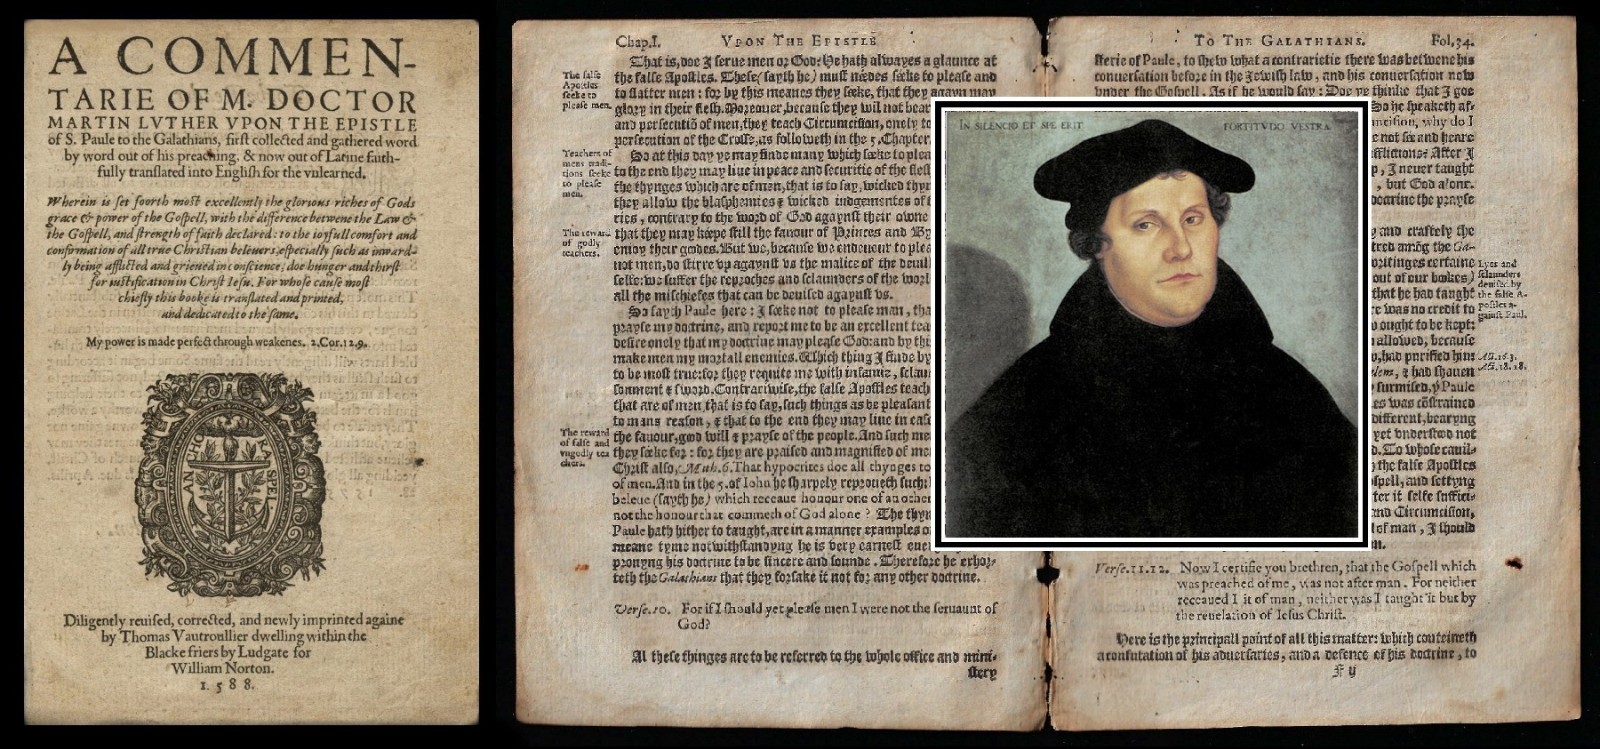 A COMMEN-
TARIE OF M. DOCTOR
MARTIN LVTHER VPON THE EPISTLE
of S. Paule to the Galathians, first collected and gathered word
by word out of his preaching. & now out of Latine faith-
fully translated into English for the vnlearned.
Wherein is set fourth most excellently the glorious riches of Gods
grace & power of the Gospell, with the difference betwene the Law &
the Gospell, and strength of faith declared: to the ioyfull comfort and
confirmation of all true Christian beleuers, especially such as inward-
ly being afflicted and grieued in conscience, doe hunger and thirst
for iustification in Christ Iesu. For whose cause most
chiefly this booke is translated and printed,
and dedicated to the same.
My power is made perfect through weakenes. 2.Cor.12.9.
ANCHORA SPEI.
Diligently reuised, corrected, and newly imprinted againe
by Thomas Vautroullier dwelling within the
Blacke friers by Ludgate for
William Norton.
1588.
Chap.I. VPON THE EPISTLE
That is, doe I serue men or God: He hath alwayes a glaunce at
the false Apostles. These (sayth he) must nedes seeke to please and
to flatter men: for by this meanes they seeke, that they agayn may
glory in their flesh. Moreouer, because they wil not bear
and persecutiō of men, they teach Circumcision, onely to
persecution of the Crosse, as followeth in the 5. Chapter.
So at this day ye may finde many which seeke to plea
to the end they may liue in peace and securitie of the fles
the thynges which are of men, that is to say, wicked thyn
they allow the blasphemies & wicked iudgementes of
ries, contrary to the word of God agaynst their owne
that they may keepe still the fauour of Princes and By
enioy their goodes. But we, because we endeuour to plea
not men, do stirre vp agaynst vs the malice of the deuil
selfe: we suffer the reproches and sclaunders of the worl
all the mischiefes that can be deuised agaynst vs.
So sayth Paule here: I seeke not to please man, tha
prayse my doctrine, and report me to be an excellent tea
desire onely that my doctrine may please God: and by thi
make men my mortall enemies. Which thing I finde by
to be most true: for they requite me with infamie, sclaun
sonment & sword. Contrariwise, the false Apostles teach
that are of men, that is to say, such things as be pleasant
to mans reason, & that to the end they may liue in ease
the fauour, good will & prayse of the people. And such me
they seeke for: for they are praised and magnified of me
Christ also, Math.6. That hypocrites doe all thynges to
of men. And in the 5. of Iohn he sharpely reproueth such:
beleue (sayth he) which receaue honour one of an other
not the honour that commeth of God alone? The thyn
Paule hath hither to taught, are in a manner examples o
meane tyme notwithstandyng he is very earnest eue
prouyng his doctrine to be sincere and sounde. Therefore he exhor-
teth the Galathians that they forsake it not for any other doctrine.
Verse.10. For if I should yet please men I were not the seruaunt of
God?
Al these thinges are to be referred to the whole office and mini-
stery
The false
Apostles
seeke to
please men.
Teachers of
mens tradi-
tions seeke
to please
men.
The reward
of godly
teachers.
The reward
of false and
vngodly tea
chers.
TO THE GALATHIANS. Fol.34.
sterie of Paule, to shew what a contrarietie there was betwene his
conuersation before in the Jewish law, and his conuersation now
vnder the Gospell. As if he would say: Doe ye thinke that I goe
So he speaketh af-
mcision, why do I
e not see and heare
fflictions: After I
p, I neuer taught
, but God alone.
doctrine the prayse
y and craftely the
tred amōg the Ga-
writinges certaine
out of our bokes,)
that he had taught
re was no credit to
ought to be kept:
allowed, because
o, had purified him
lem, & had shauen
surmised, Paule
es was cōstrained
different, bearyng
yet vnderstood not
d. To whose cauil-
the false Apostles
spell, and settyng
ter it selfe suffici-
and Circumcision,
of man, I should
n.
Lyes and
sclaunders
deuised by
the false A-
postles a-
gainst Paul.
Act.16.3.
Act.18.18.
Verse.11.12. Now I certifie you brethren, that the Gospell which
was preached of me, was not after man. For neither
receaued I it of man, neither was I taught it but by
the reuelation of Iesus Christ.
Here is the principall point of all this matter: which conteineth
a confutation of his aduersaries, and a defence of his doctrine, to
F ij
IN SILENCIO ET SPE ERIT FORTITVDO VESTRA